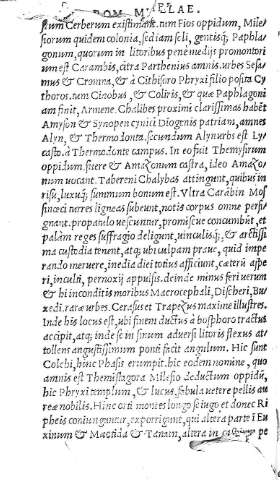 POM. MELAE.
tum Cerberum existimant. tum Tios oppidum, Mile-
siorum quidem colonia, sed iam soli, gentisq; Paphla
gonum, quorum in litoribus pene medijs promontori
um est Carambis, citra Parthenius amnis. urbes Sesa
mus & Cromna, & à Cithisoro Phryxi filio posita Cy
thoros, hinc Cinolis, & Coliris, & quæ Paphlagoni
am finit, Armene. Chalibes proximi clarissimas habẽt
Amyson & Synopen cynici Diogenis patriam, amnes
Alyn, & Thermodonta. secundum Alyn urbs est Ly
casto. à Thermodonte campus. In eo fuit Themysirum
oppidum, fuere & Amazonum castra, ideo Amazo
nium uocant. Tabereni Chalybas attingunt, quibus in
risu, luxuq; summum bonum est. Vltra Carabin Mos
sineci turres ligneas subeunt, notis corpus omne persi
gnant. propatulo uescuntur, promiscue concumbũt, et
palàm. reges suffragio deligunt, uinculisq; & arctissi
ma custodia tenent, atq; ubi culpam praue, quid impe
rando meruere, inedia diei totius afficiunt. cæterũ aspe
ri, inculti, pernoxij appulsis. deinde minus feri uerum
& hi inconditis moribus Macrocephali, Discheri, Bu
xedi. raræ urbes. Cerasus et Trapezus maxime illustres.
Inde his locus est, ubi finem ductus à bosphoro tractus
accipit, atq; inde se in sinum aduersi litoris flexus at/
tollens angustissimum ponti facit angulum. Hic sunt
Colchi, hinc Phasis erumpit. hic eodem nomine, quo
amnis est Themistagora Milesio deductum oppidũ,
hic Phryxi templum, & lucus, fabula uetere pellis au
reæ nobilis. Hinc orti montes longo se iugo et donec Ri
pheis coniungantur, exporrigunt, qui altera parte ĩ Eu
xinum & Mæotida & Tanain, altera in